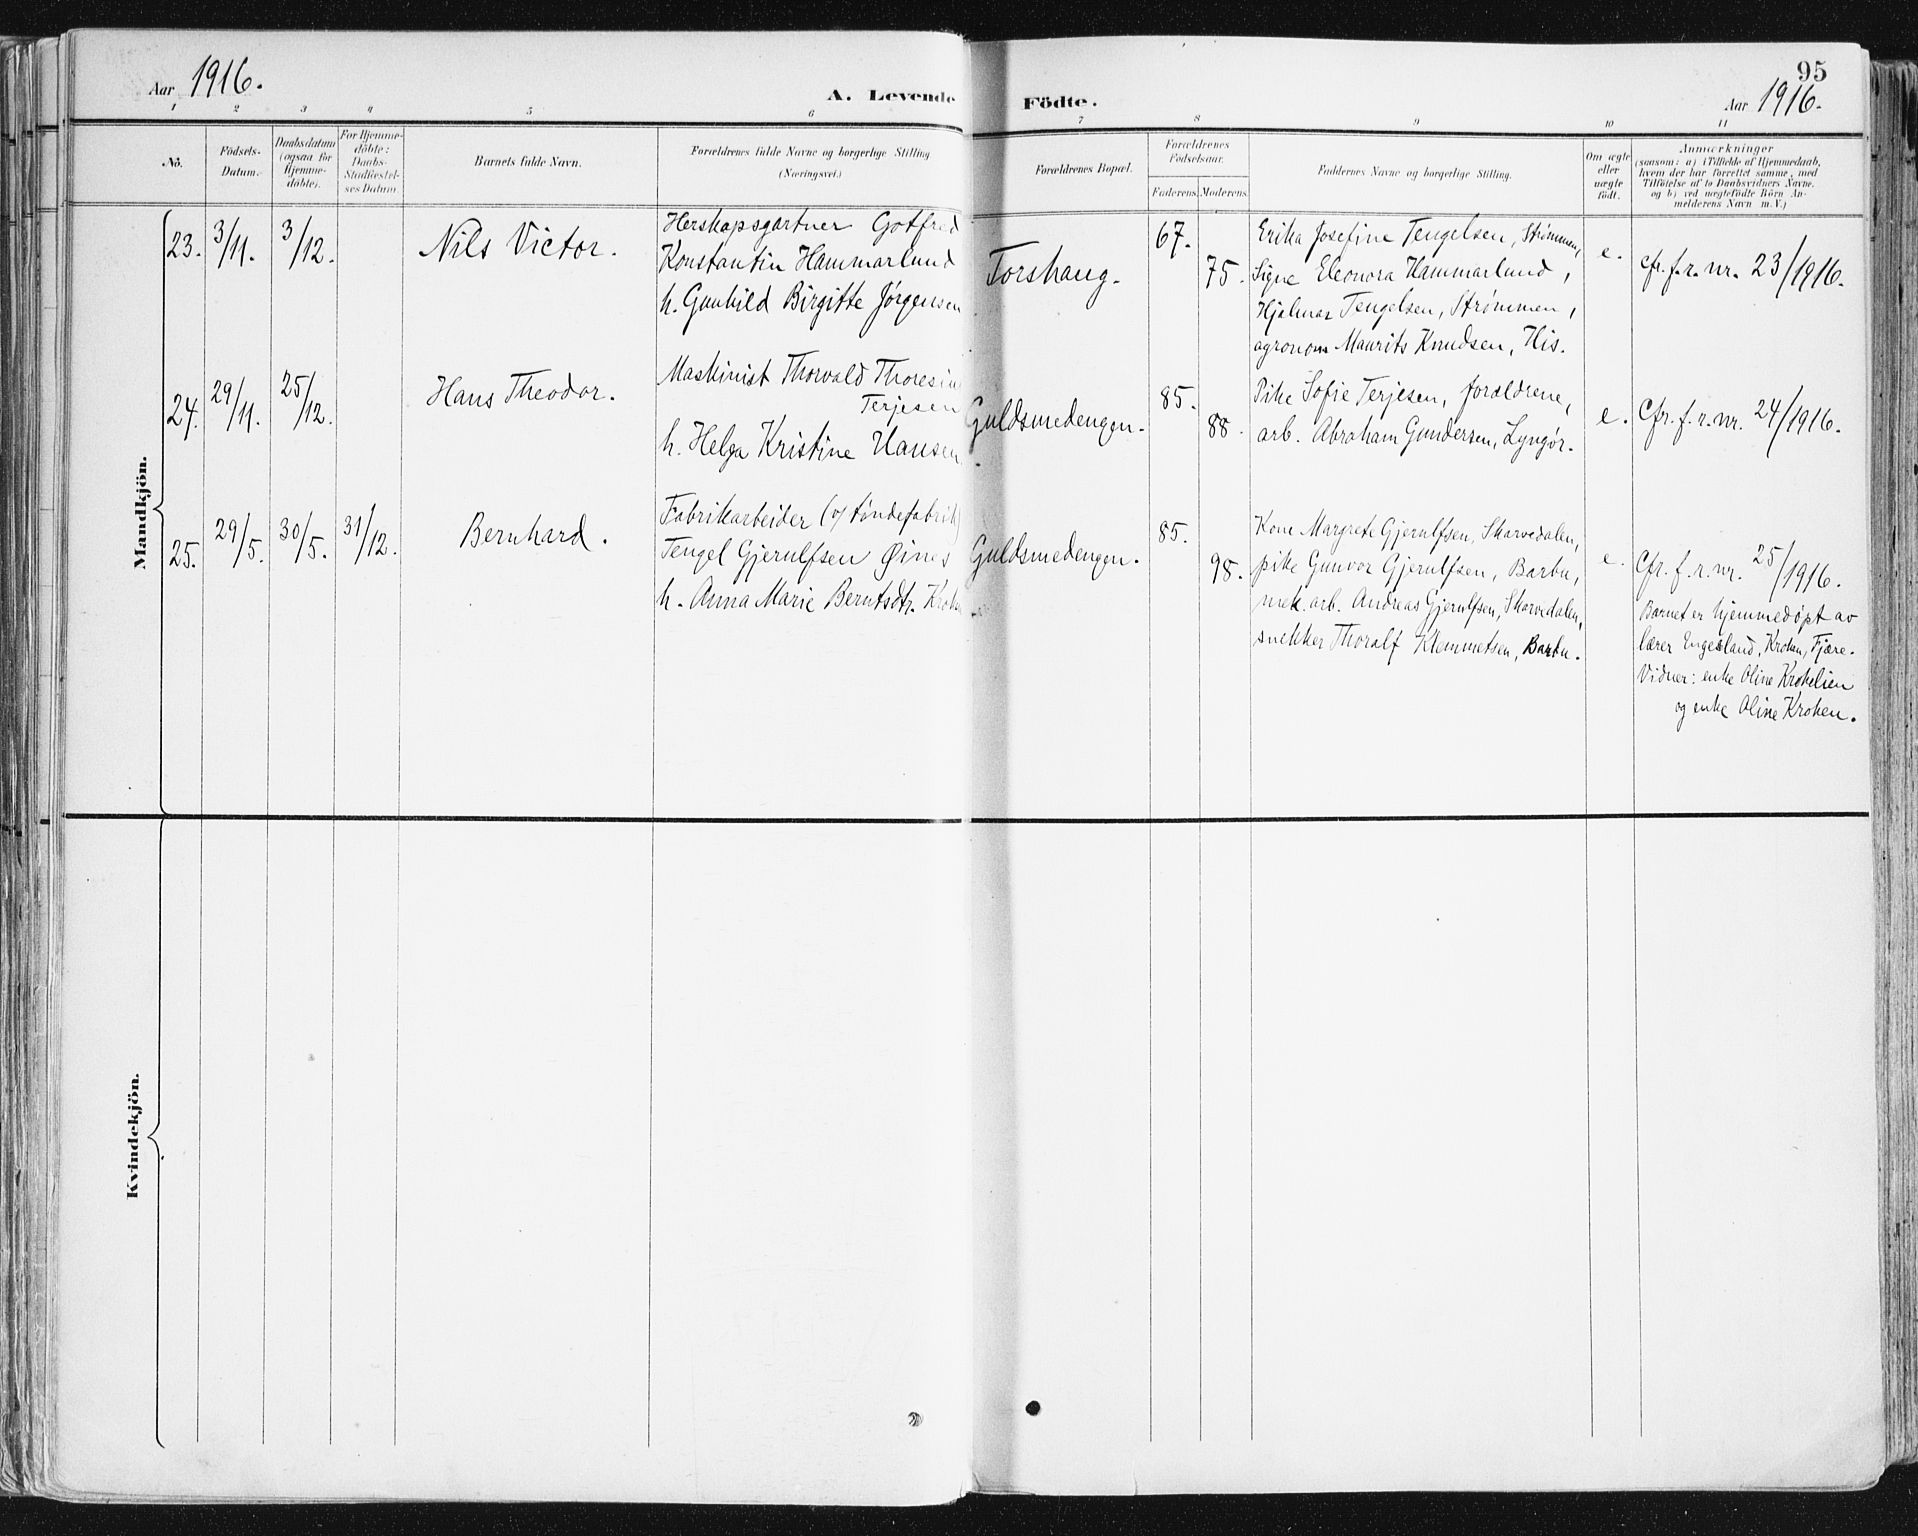 Aar 1916.
A. Levende Födte.
95
Aar 1916.
1 2 3 4 5 6 7 8 9 10 11
No.
Födsels-Datum.
Daabsdatum (ogsaa for Hjemme-döbte).
For Hjemme-döbte: Daabs-Stadfæstel-ses Datum.
Barnets fulde Navn.
Forældrenes fulde Navne og borgerlige Stilling (Næringsvei.)
Forældrenes Bopæl.
Forældrenes Födselsaar.
Faderens. Moderens.
Faddernes Navne og borgerlige Stilling.
Om ægte eller uægte födt.
Anmærkninger
(saasom: a) i Tilfælde af Hjemmedaab,
hvem der har forrettet samme, med
Tilföielse af to Daabsvidners Navne.
og b) ved uægtefödte Börn An-
melderens Navn m. V.)
Mandkjön.
23. 3/11. 3/12. Nils Victor.
Herskapsgartner Gotfred
Konstantin Hammarlund
h. Gunhild Birgitte Jørgensen
Torshaug.
67.
75.
Erika Josefine Tengelsen, Strømmen,
Signe Eleonora Hammarlund,
Hjalmar Tengelsen, Strømmen,
agronom Maurits Knudsen, His.
e.
cfr. f. r. nr. 23/1916.
24. 29/11. 25/12. Hans Theodor.
Maskinist Thorvald
Terjesen
h. Helga Kristine Hansen
Guldsmedengen.
85.
88.
Pike Sofie Terjesen, forældrene,
arb. Abraham Gundersen, Lyngør.
e.
Cfr. f. r. nr. 24/1916.
25. 29/5. 30/5. 31/12. Bernhard.
Fabrikarbeider (v/ tøndefabrik)
Tengel Gjerulfsen Øines
h. Anna Marie Berntsdtr. Kroken
Guldsmedengen.
85.
98.
Kone Margrete Gjerulfsen, Skarvedalen,
pike Gunvor Gjerulfsen, Barbu,
mek. arb. Andreas Gjerulfsen, Skarvedalen,
snekker Thoralf Klemmetsen, Barbu.
e.
Cfr. f. r. nr. 25/1916.
Barnet er hjemmedøpt av
lærer Engesland, Kroken, Fjære.
Vidner: enke Oline Krokelien
og enke Oline Kroken.
Kvindekjön.